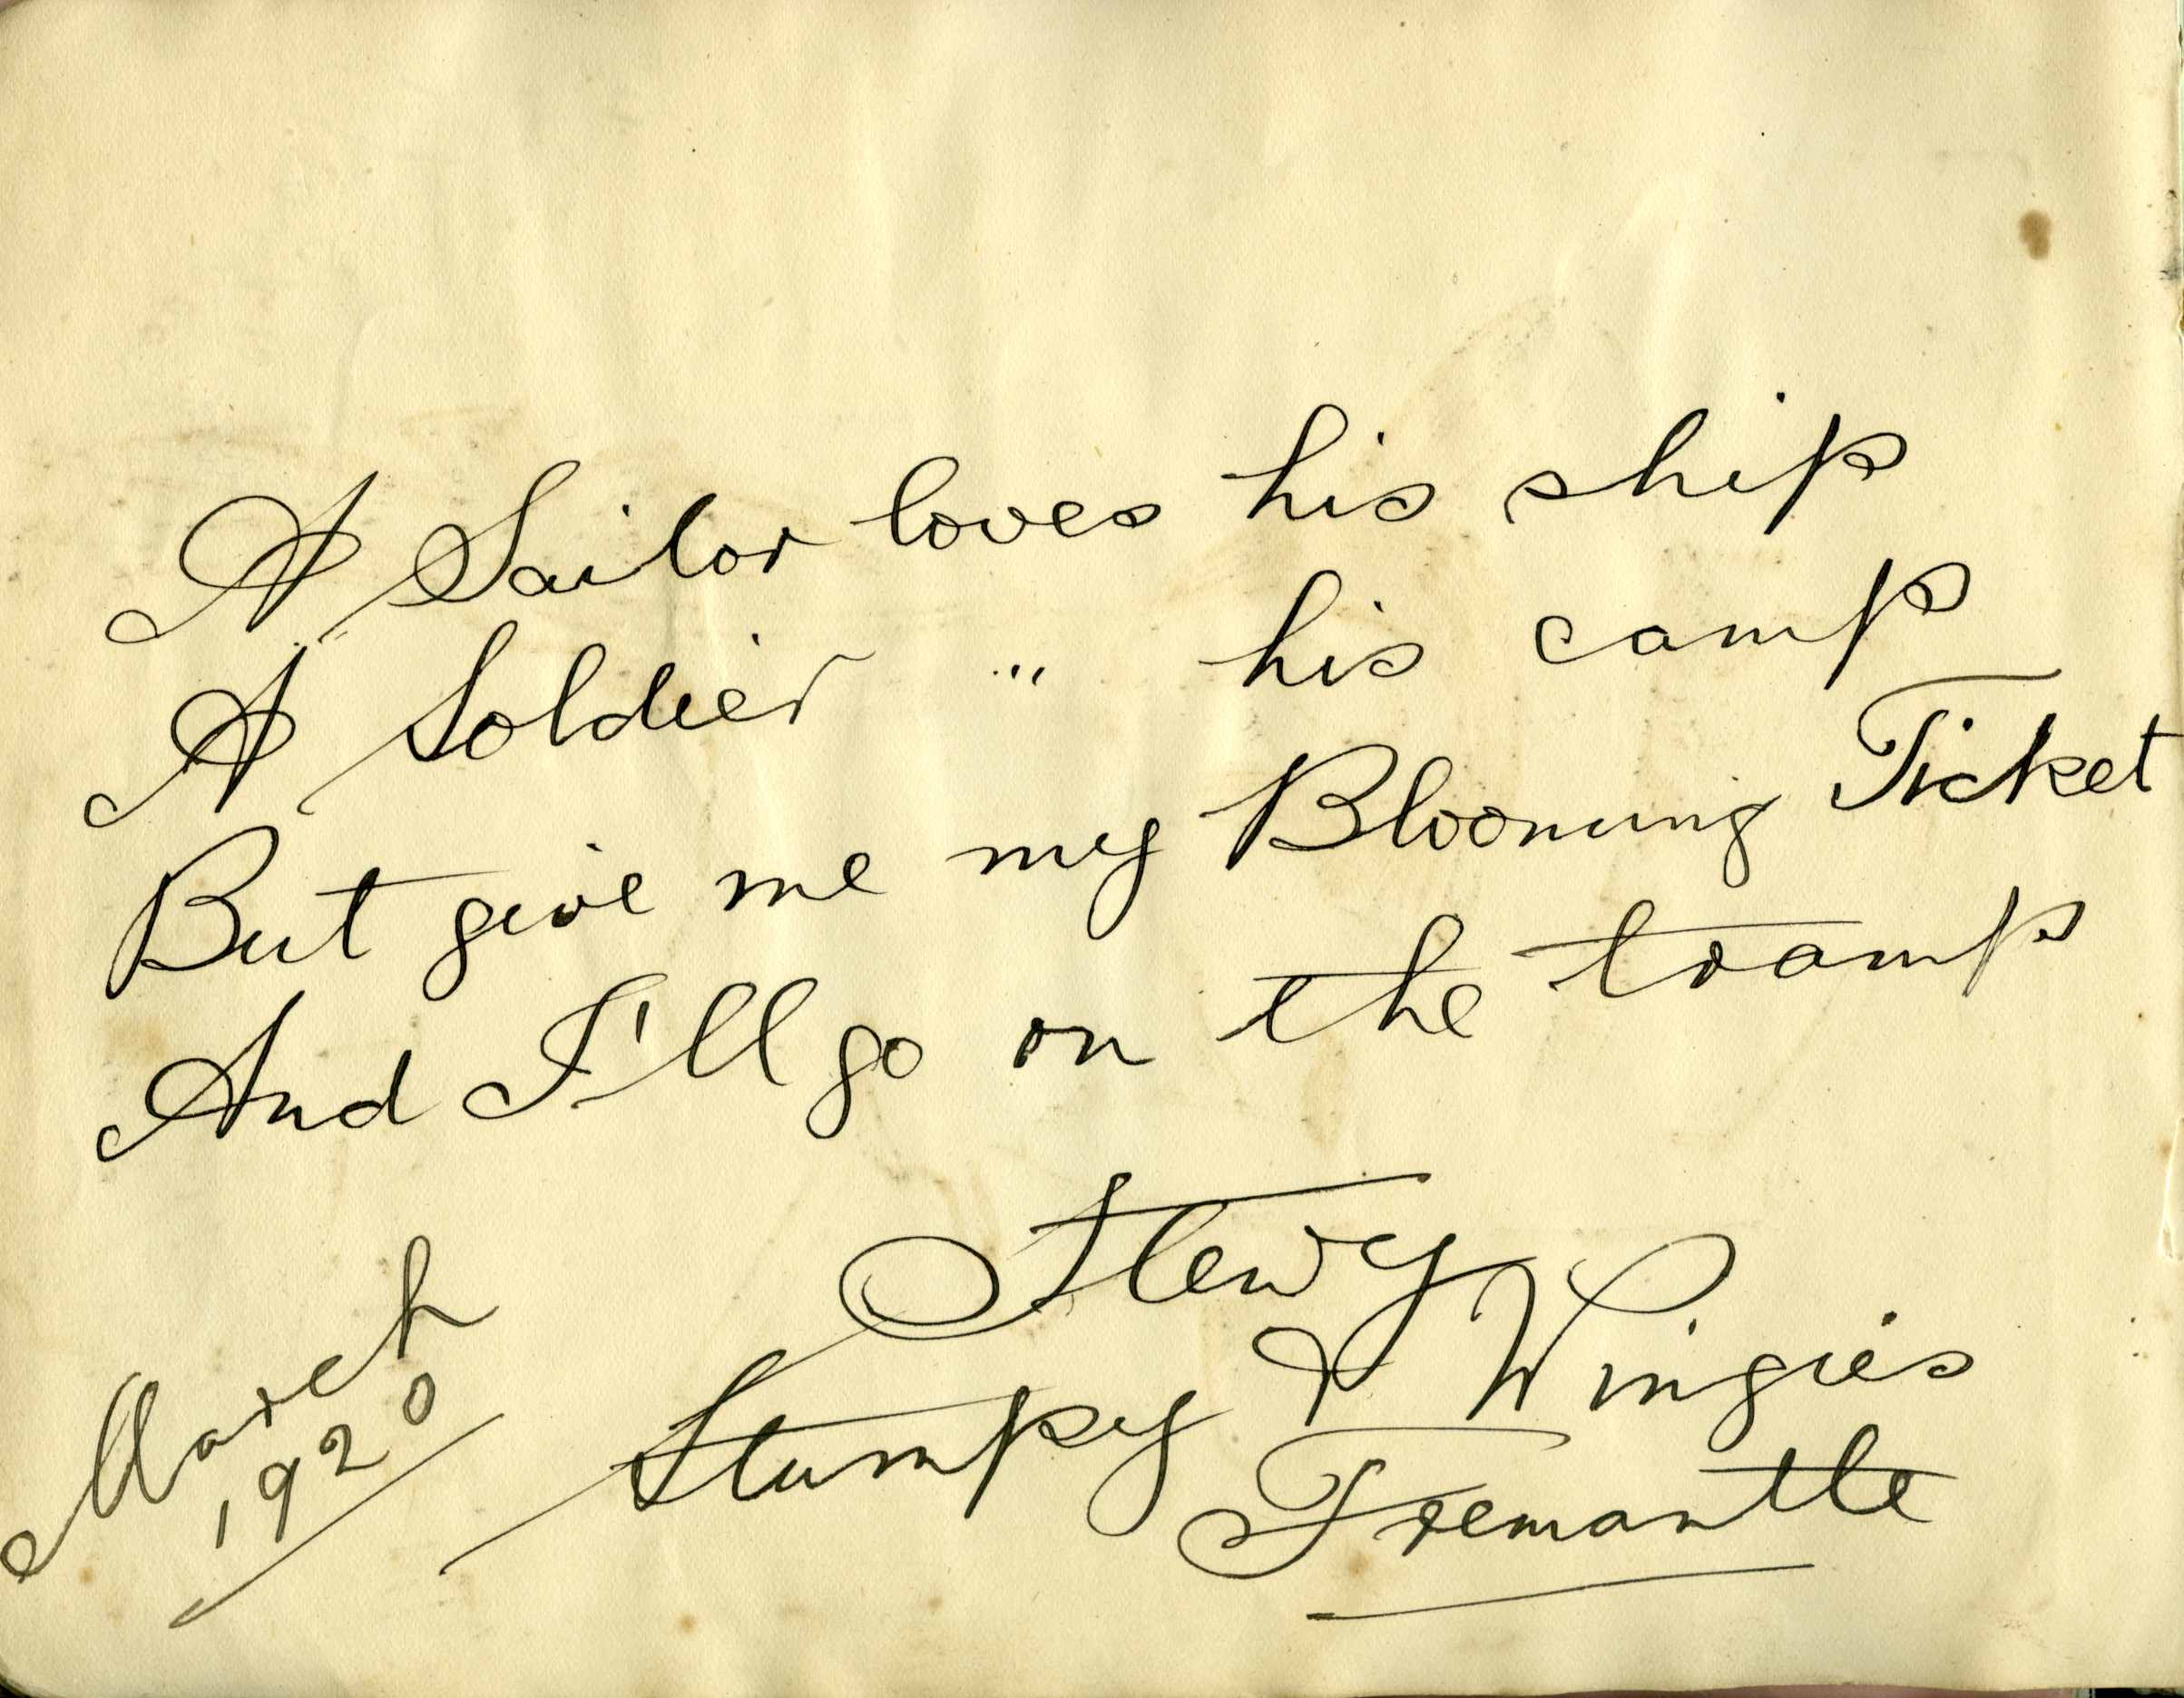 A Sailor loves his ship
A Soldier " his camp
But give me my Blooming Ticket
And I'll go on the tramp
Stewy
Stumpy & Wingies
Fremantle
March
1920